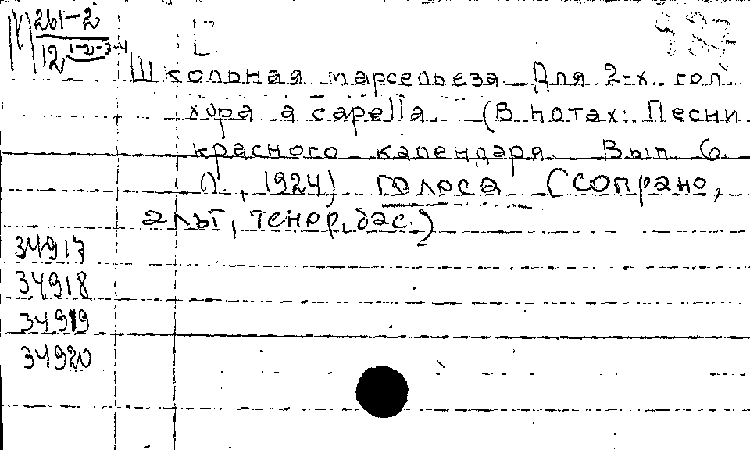 М 261-2
12 1-2-3-4
987
Школьная марсельеза. Для 2-х гол.
хора a capella. (В нотах: Песни
красного календаря. Вып. 6.
Л., 1924) голоса (сопрано,
альт, тенор, бас.)
34917
34918
34919
34920